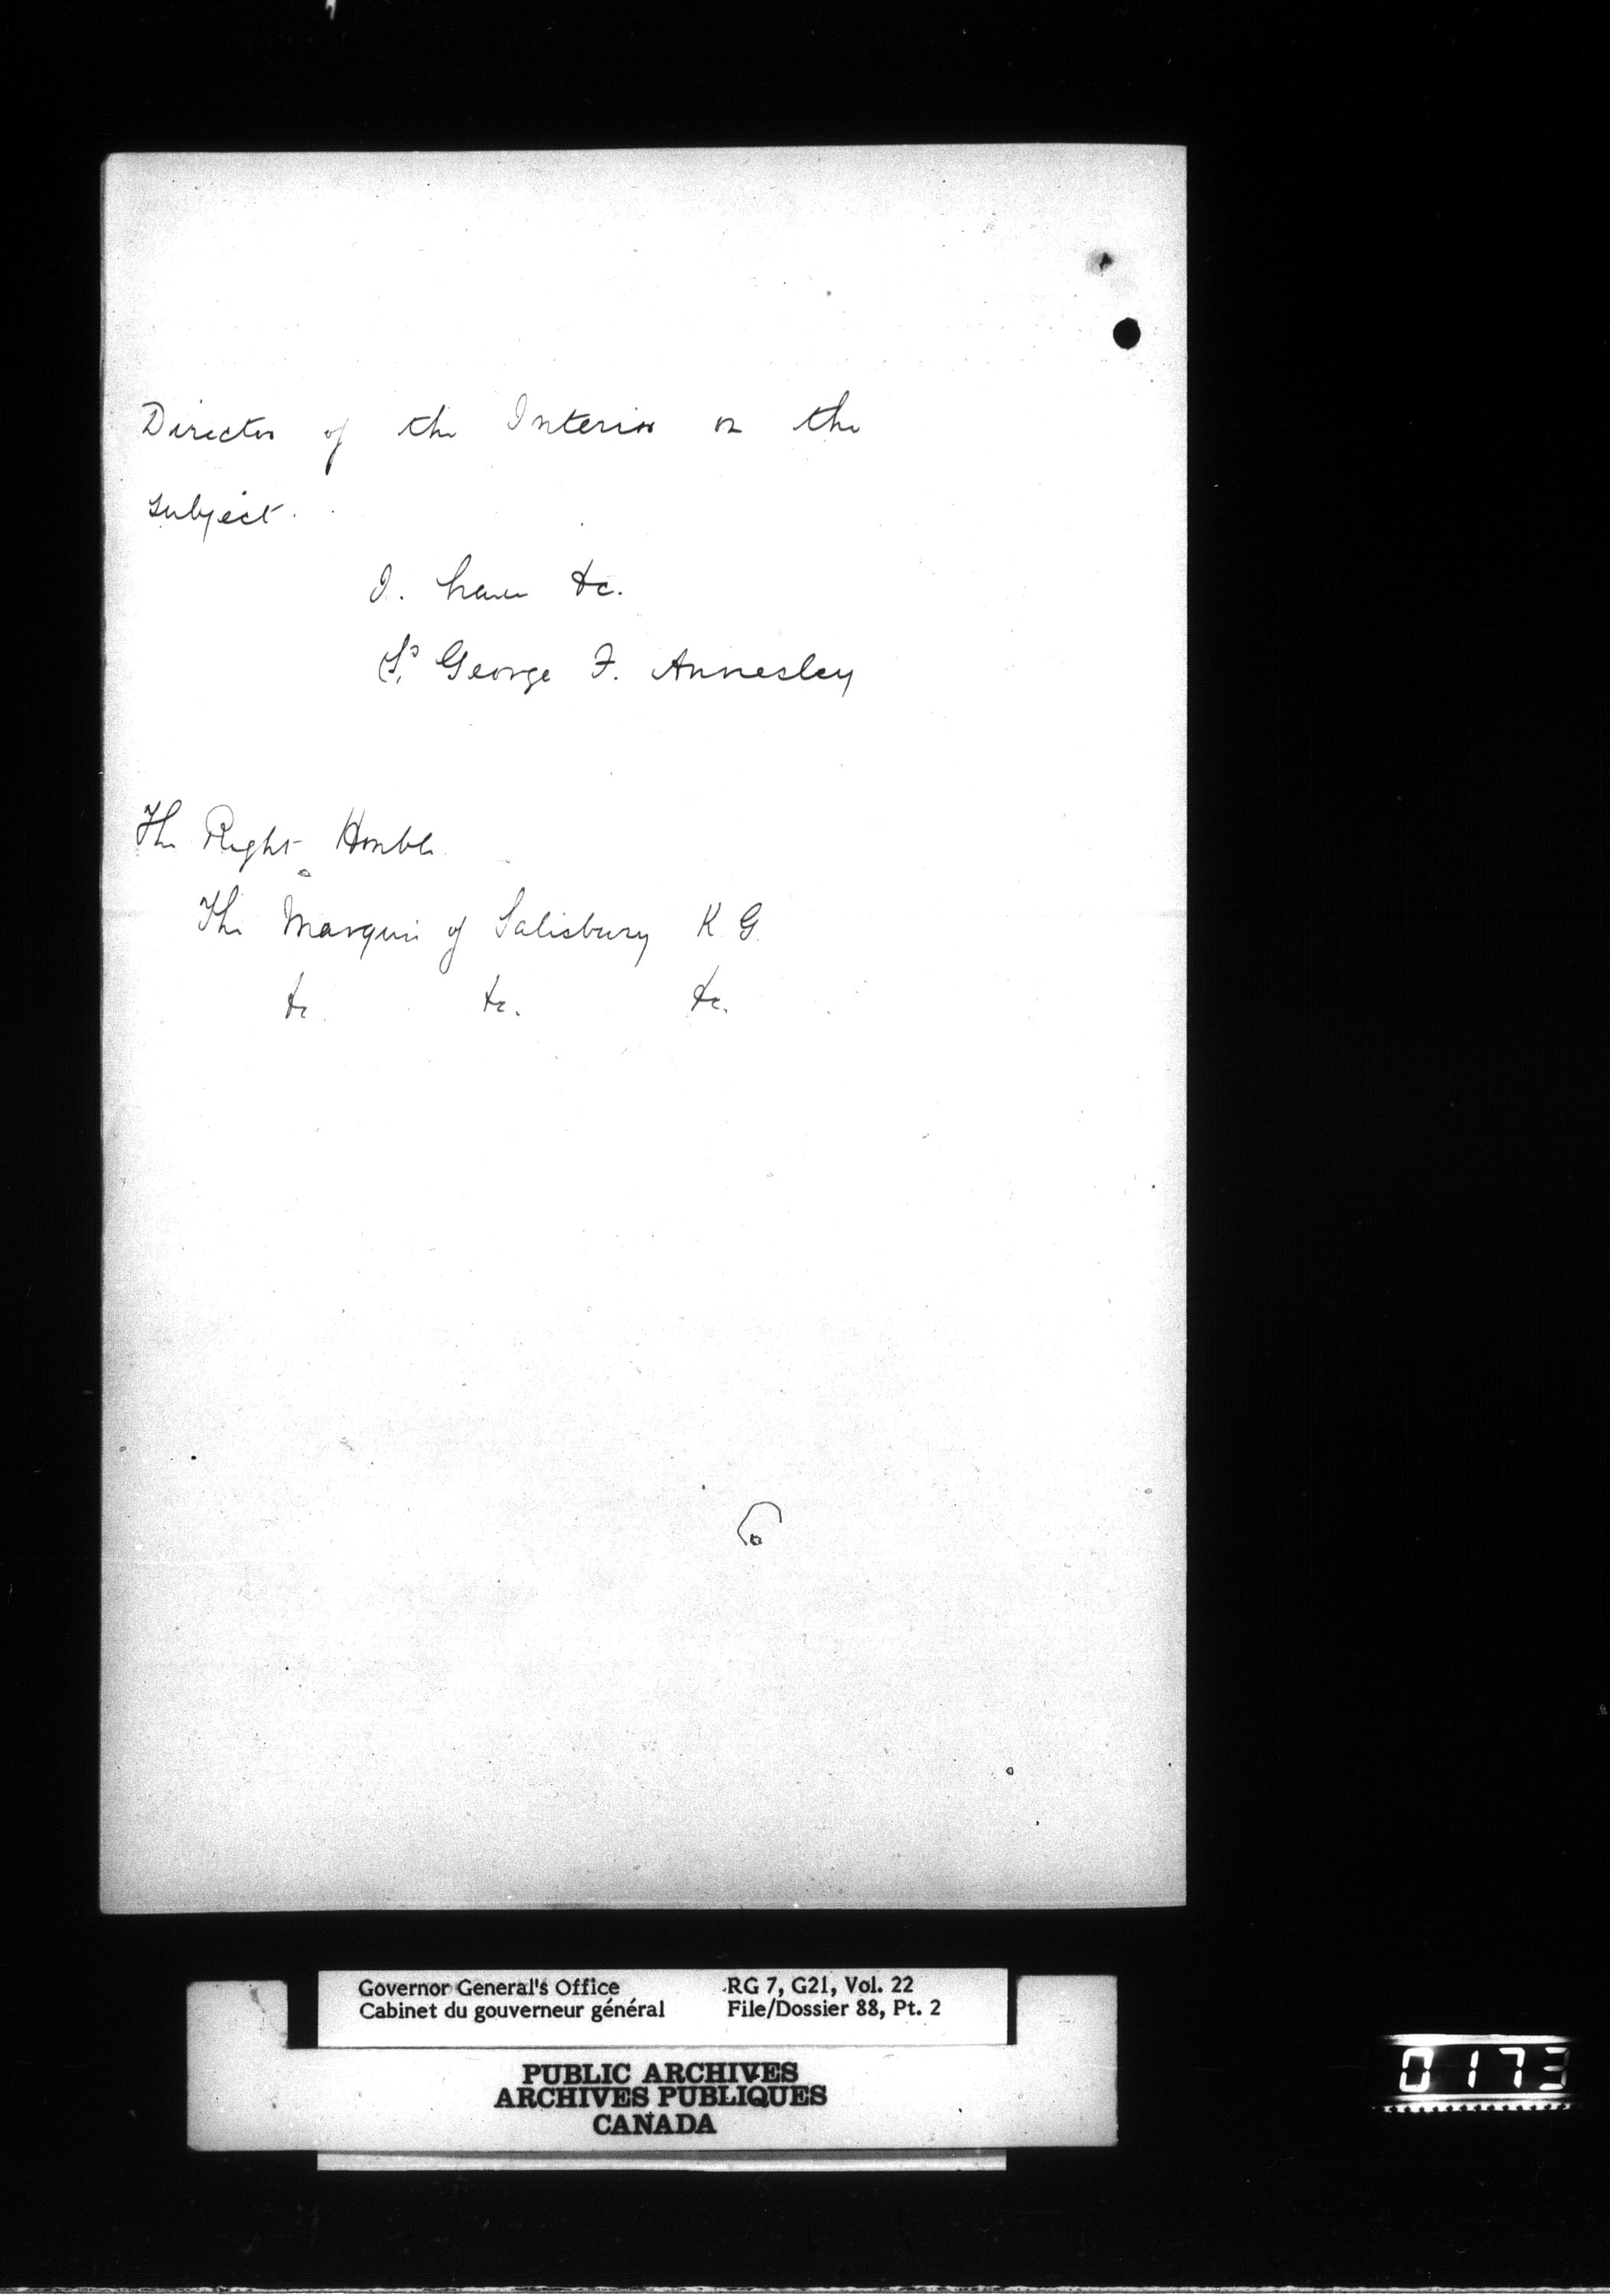 Director of the Interior on the
subject.
I. have &c.
Sd George F. Annesley
The Right Honble
The Marquis of Salisbury K.G.
&c. &c. &c.
Governor General's Office RG 7, G21, Vol. 22
Cabinet du gouverneur général File/Dossier 88, Pt. 2
PUBLIC ARCHIVES
ARCHIVES PUBLIQUES
CANADA
0173